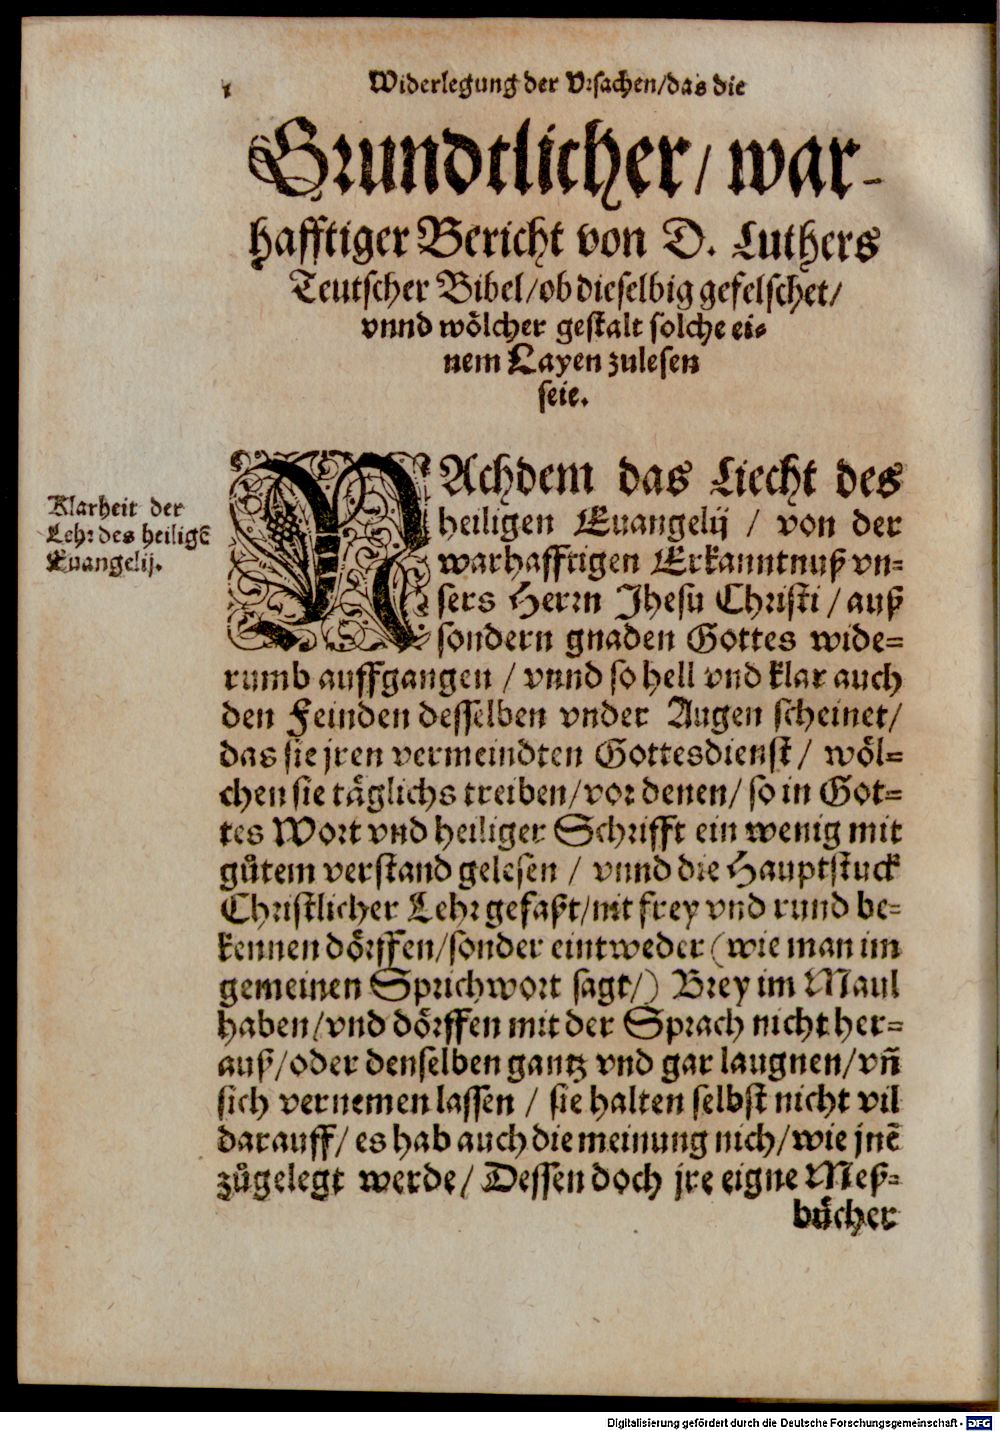 1
Widerlegung der Vrsachen/das die
Grundtlicher/ war-
hafftiger Bericht von D. Luthers
Teutscher Bibel/ob dieselbig gefelschet/
vnnd wölcher gestalt solche ei-
nem Layen zulesen
seie.
Klarheit der
Lehr des heiligẽ
Euangelij.
NAchdem das Liecht des
heiligen Euangelij / von der
warhafftigen Erkanntnuß vn-
sers Herrn Jhesu Christi / auß
sondern gnaden Gottes wide-
rumb auffgangen / vnnd so hell vnd klar auch
den Feinden desselben vnder Augen scheinet/
das sie jren vermeindten Gottesdienst/ wöl-
chen sie täglichs treiben/vor denen/ so in Got-
tes Wort vnd heiliger Schrifft ein wenig mit
gůtem verstand gelesen / vnnd die Hauptstuck
Christlicher Lehr gefaßt/nit frey vnd rund be-
kennen dörffen/sonder eintweder (wie man im
gemeinen Sprichwort sagt/) Brey im Maul
haben/vnd dörffen mit der Sprach nicht her-
auß/oder denselben gantz vnd gar laugnen/vñ
sich vernemen lassen / sie halten selbst nicht vil
darauff/ es hab auch die meinung nich/wie jnẽ
zůgelegt werde/ Dessen doch jre eigne Meß-
bücher
Digitalisierung gefördert durch die Deutsche Forschungsgemeinschaft - DFG